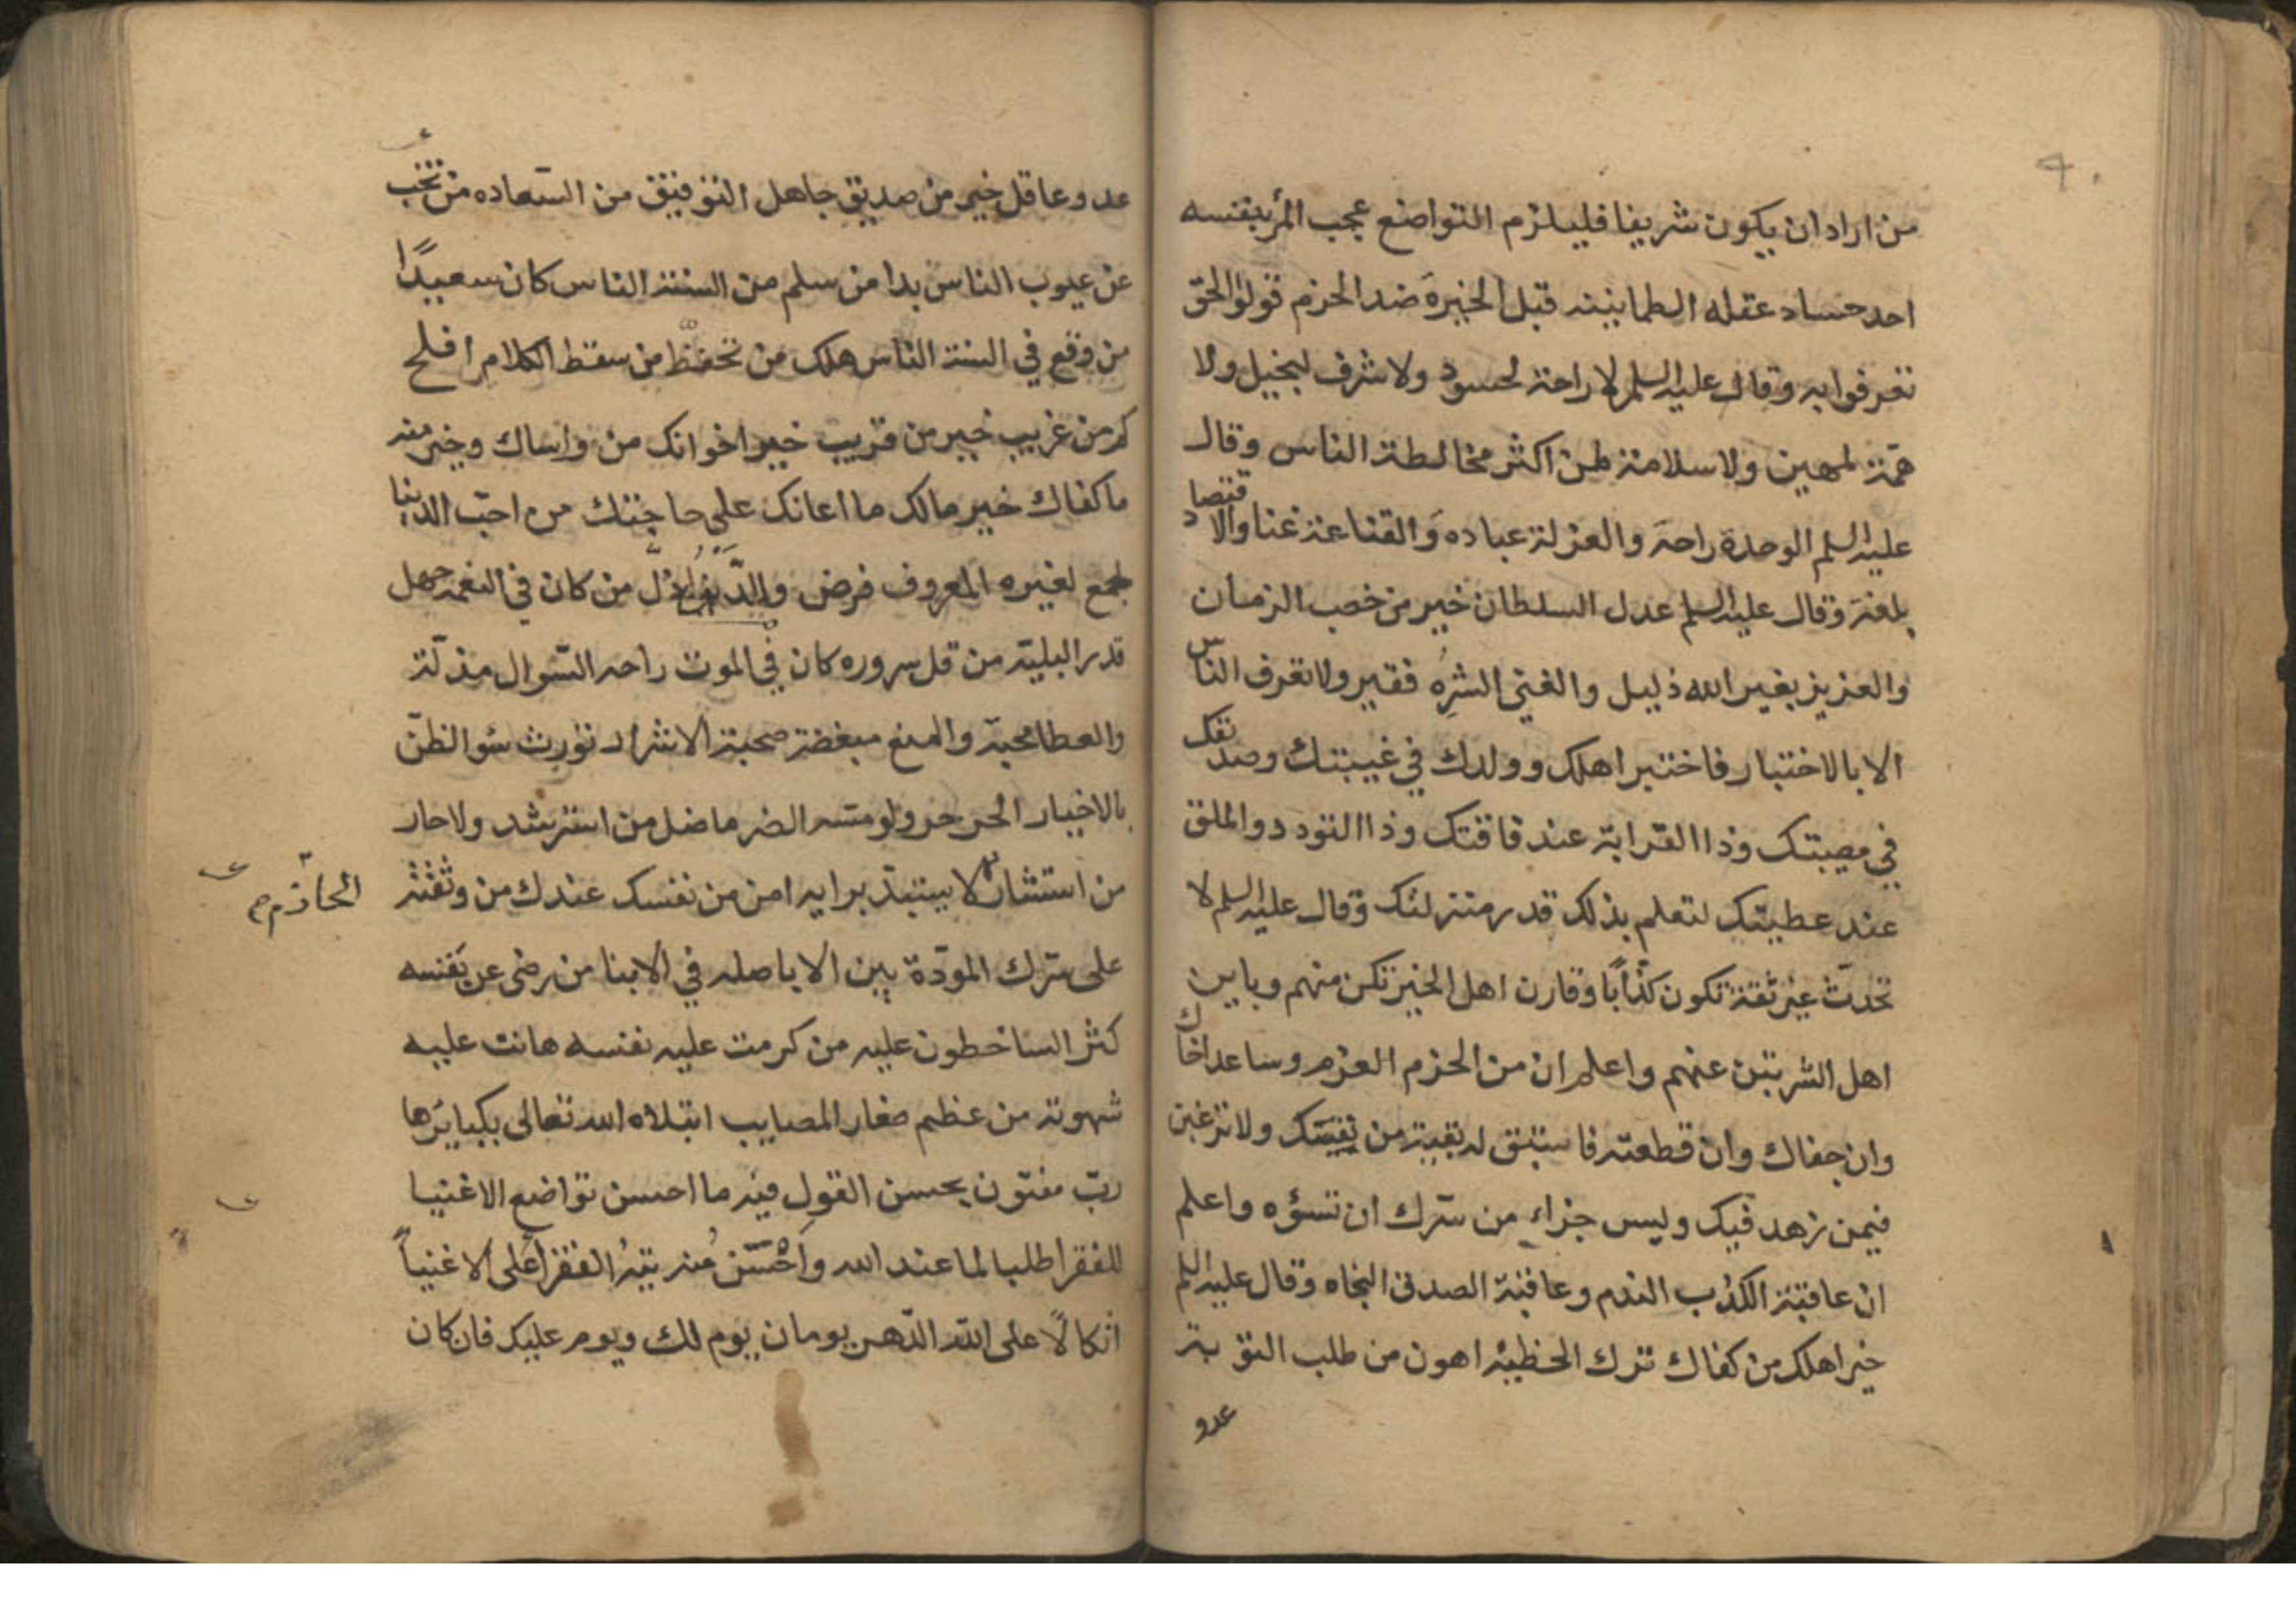 من اراد ان يكون شريفا فليلزم التواضع عجب المرء بنفسه
احد حساد عقله الطمانينه قبل الخبرة ضد الحزم قولوا الحق
تعرفوا به وقال عليه السلم لا راحة لحسود ولا شرف لبخيل ولا
همّة لمهين ولا سلامة لمن اكثر مخالطة الناس وقال
عليه السلم الوحدة راحة والعزلة عباده والقناعة غنا والاقتصاد
بلغة وقال عليه السلم عدل السلطان خير من خصب الزمان
والعزيز بغير الله ذليل والغني الشرِه فقير ولا تعرف الناس
الا بالاختبار فاختبر اهلك وولدك في غيبتك وصديقك
في مصيبتك وذا القرابة عند فاقتك وذا التودد والملق
عند عطيتك لتعلم بذلك قدر منزلتك وقال عليه السلم لا
تحدّث غير ثقة تكون كذّابًا وقارن اهل الخير تكن منهم وباين
اهل الشر تبن عنهم واعلم ان من الحزم العزم وساعد اخاك
وان جفاك وان قطعته فاستبق له بقية من نفسك ولا ترغبن
فيمن زهد فيك وليس جزاء من سّرك ان تسؤه واعلم
ان عاقبة الكذب الندم وعاقبة الصدق النجاه وقال عليه السلم
خير اهلك من كفاك ترك الخطيئة اهون من طلب التوبة
عدو
عدو عاقل خير من صديق جاهل التوفيق من السّعاده من بحث
عن عيوب الناس بدا من سلم من السنة الناس كان سعيدًا
من وقع في السنة الناس هلك من تحفّظ من سقط الكلام افلح
كم من غريب خير من قريب خير اخوانك من واساك وخير منه
ما كفاك خير مالك ما اعانك على حاجتك من احبّ الدنيا
جمع لغيره المعروف فرض من كان في النعمة جهل
قدر البلية من قل سروره كان في الموت راحه السّوال مذلّة
والعطا محبة والمنع مبغضة صحبة الاشرار تورث سُو الظنّ
بالاخيار الحر حر ولو مسّه الضر ما ضل من استرشد ولا حار
من استشار لا يستبدّ برايه امن من نفسك عندك من وثقته
الحازم
على سّرك المودّة بين الابا صله في الابنا من رضى عن نفسه
كثر الساخطون عليه من كرمت عليه نفسه هانت عليه
شهوته من عظم صغار المصايب ابتلاه الله تعالى بكبايرها
ربّ مفتون بحسن القول فيه ما احسن تواضع الاغنيا
للفقرا طلبا لما عند الله واحسن منه تيه الفقرا على الاغنيا
اتكالًا على الله الدّهر يومان يوم لك ويوم عليك فان كان